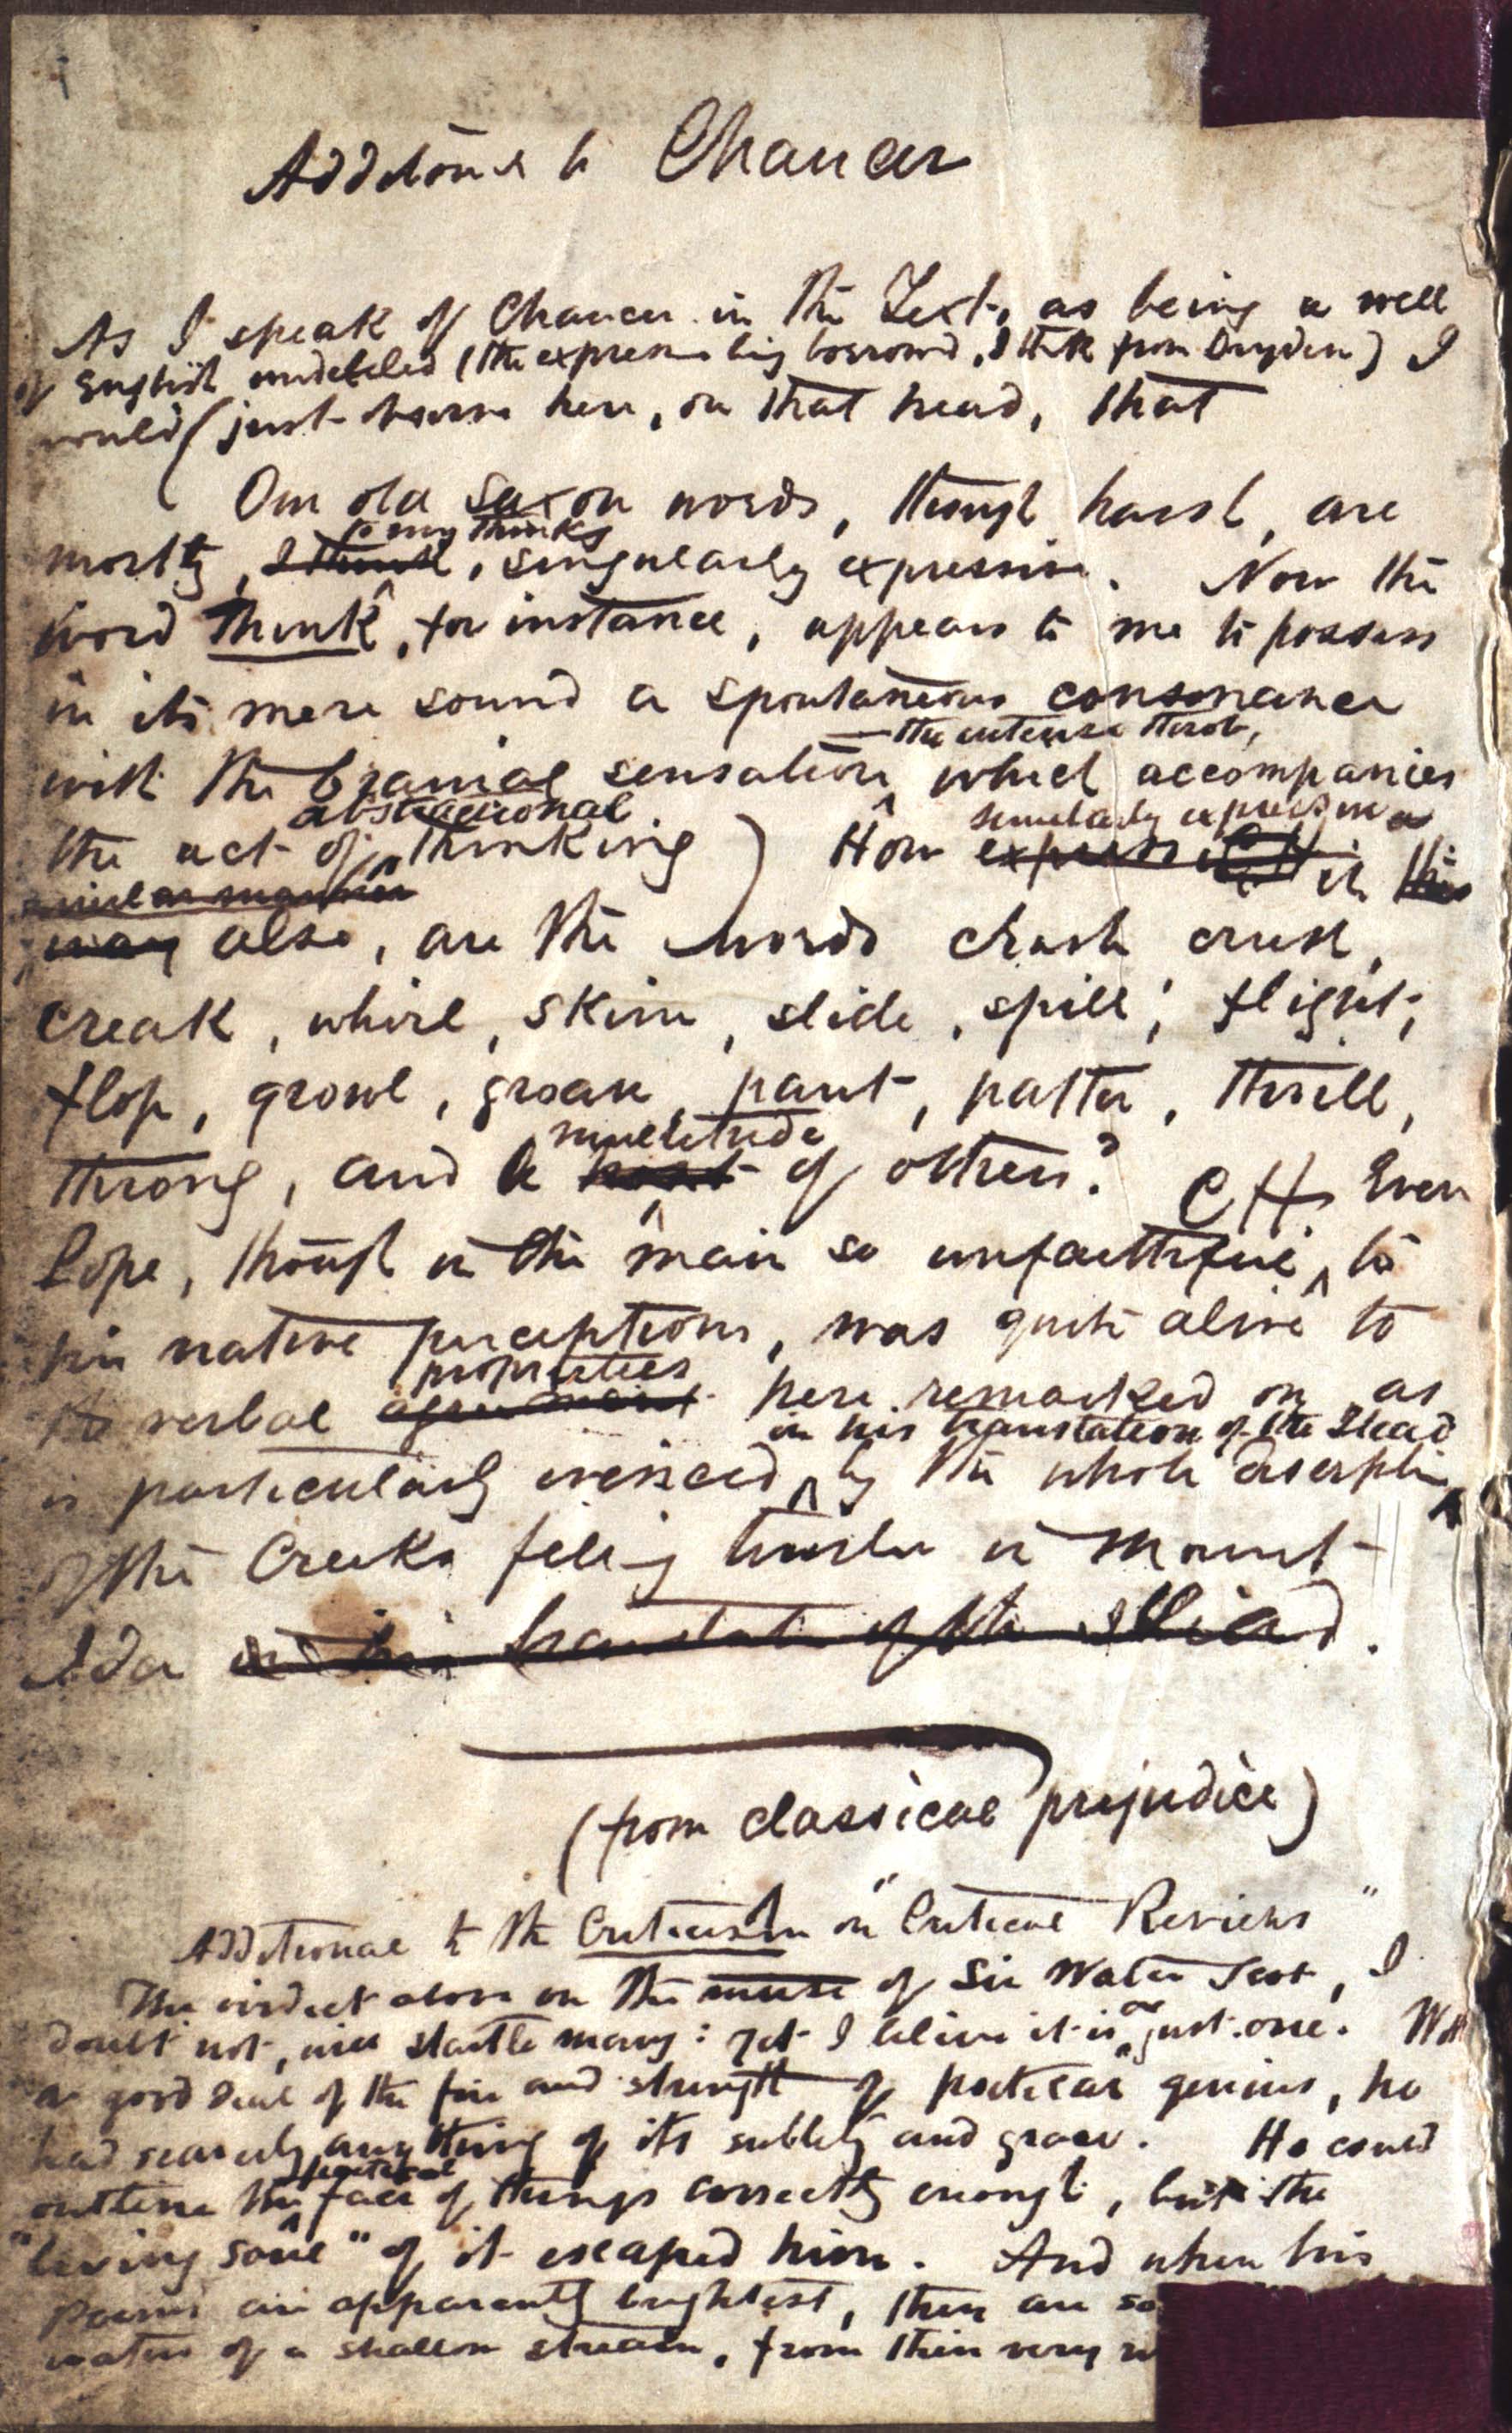 Additional to Chaucer
As I speak of Chaucer in the Text, as being a well
of English undefiled (the expression being borrowed, I think from Dryden) I
would just observe here, on that head, that
Our old Saxon words, though harsh, are
to my thinking
mostly, I think, singularly expressive. Now the
word think, for instance, appears to me to possess
in its mere sound a spontaneous consonance
—the intense throb,
with the brainial sensation which accompanies
abstractional
the act of thinking) How
similarly expressive
express in this
similar manner
way also, are the words crash crush,
creak, whirl, skim, slide, spill, flight,
flop, growl, groan, pant, patter, thrill,
multitude
throng, and a host of others? CH Even
Pope, though in the main so unfaithful to
his native perceptions, was quite alive to
properties
the verbal agreement here remarked on as
in his translation of the Iliad
is particularly evinced by the whole description
of the Greeks felling timber in Mount
Ida in his translation of the Iliad.
(from classical prejudice)
Additional to the Criticism on "Critical Reviews"
The verdict above on the muse of Sir Walter Scott, I
doubt not, will startle many: yet I believe it is a just one. With
a good deal of the fire and strength of poetical genius, he
had scarcely any thing of its subtlety and grace. He could
poetical
outline the face of things correctly enough, but the
"living soul" of it escaped him. And when his
Poems are apparently brightest, they are so
waters of a shallow stream, from their very